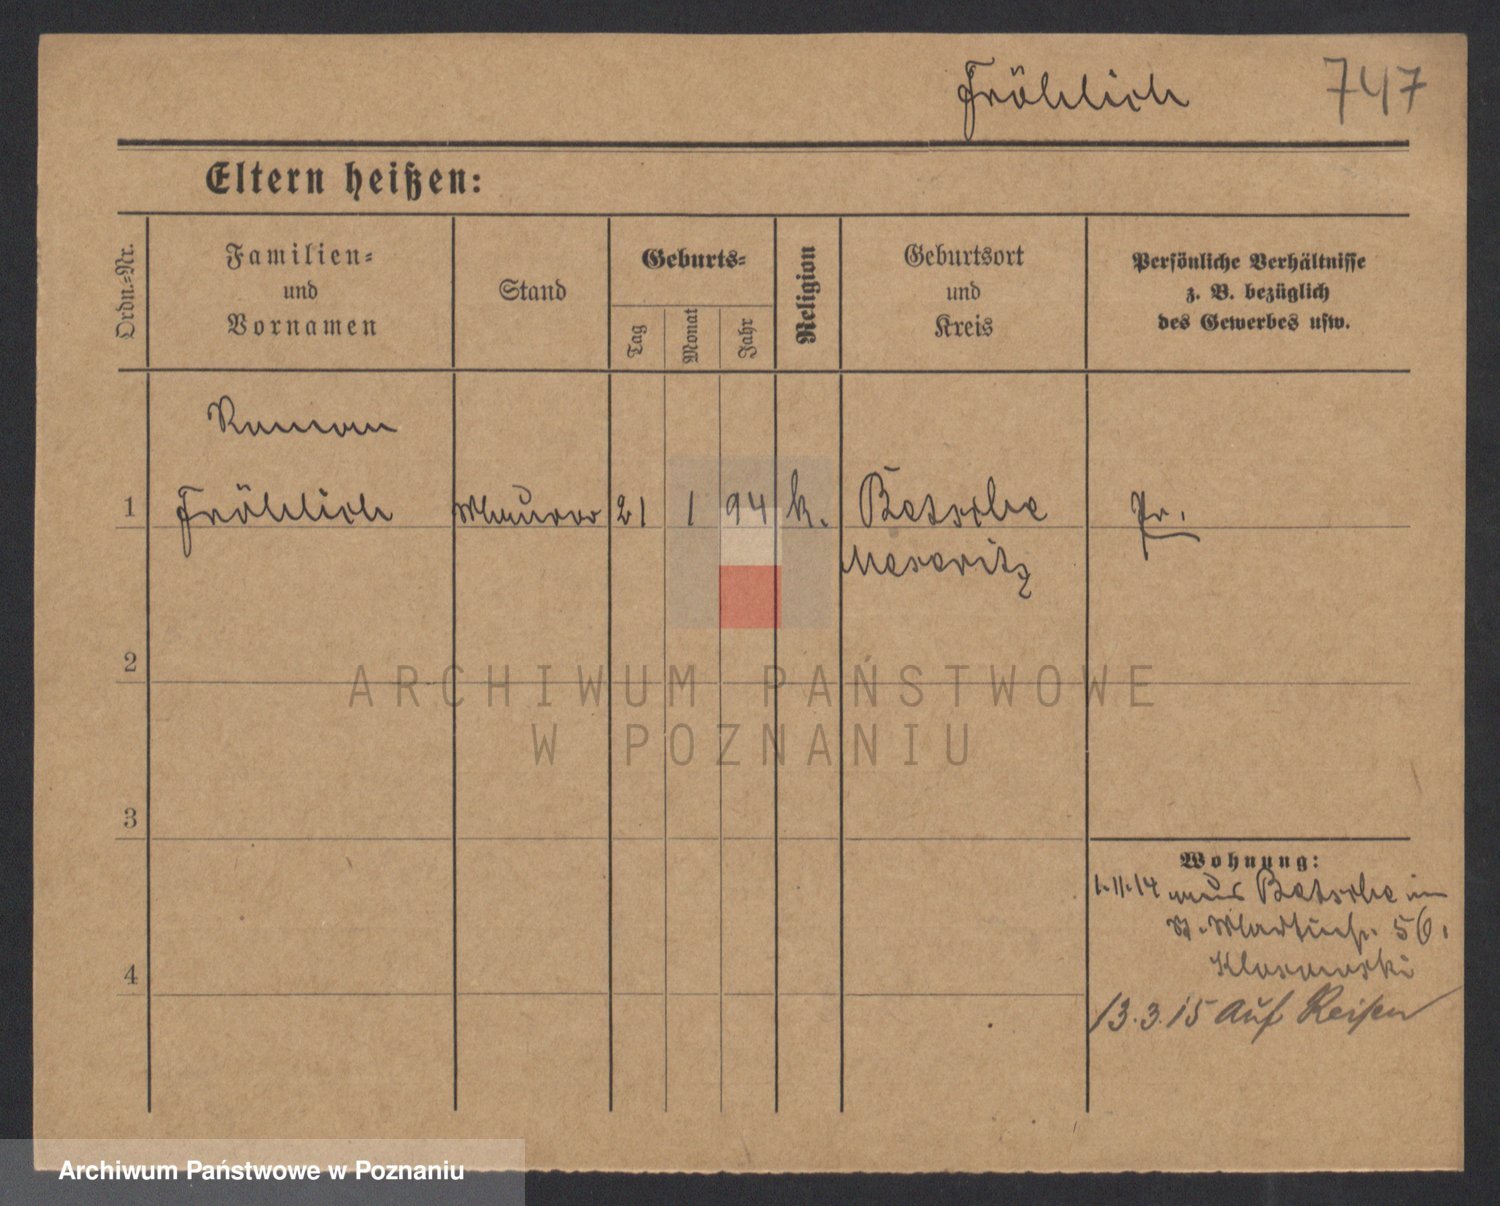 Fröhlich 747
Eltern heißen:
Ordn.=Nr.
Familien=
und
Vornamen
Stand
Geburts=
Tag
Monat
Jahr
Religion
Geburtsort
und
Kreis
Persönliche Verhältnisse
z. B. bezüglich
des Gewerbes usw.
Roman
1 Fröhlich Maurer 21 1 94 k. Betsche Pr.
Meseritz
2
3
4
Wohnung:
1.11.14 aus Betsche in
St. Martinstr. 56.
13.3.15 Auf Reisen
ARCHIWUM PAŃSTWOWE
W POZNANIU
Archiwum Państwowe w Poznaniu